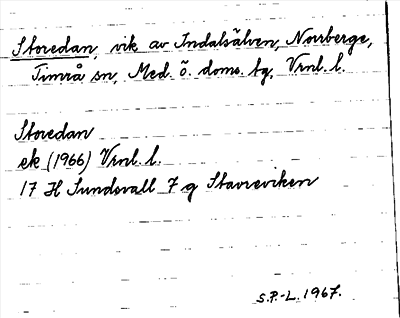 Storedan, vik av Indalsälven, Norrberge,
Timrå sn, Med. ö. doms. tg, Vrnl. l.
Storedan
ek (1966) Vrnl. l.
17 H Sundsvall 7 g Stavreviken
S.P.-L. 1967.